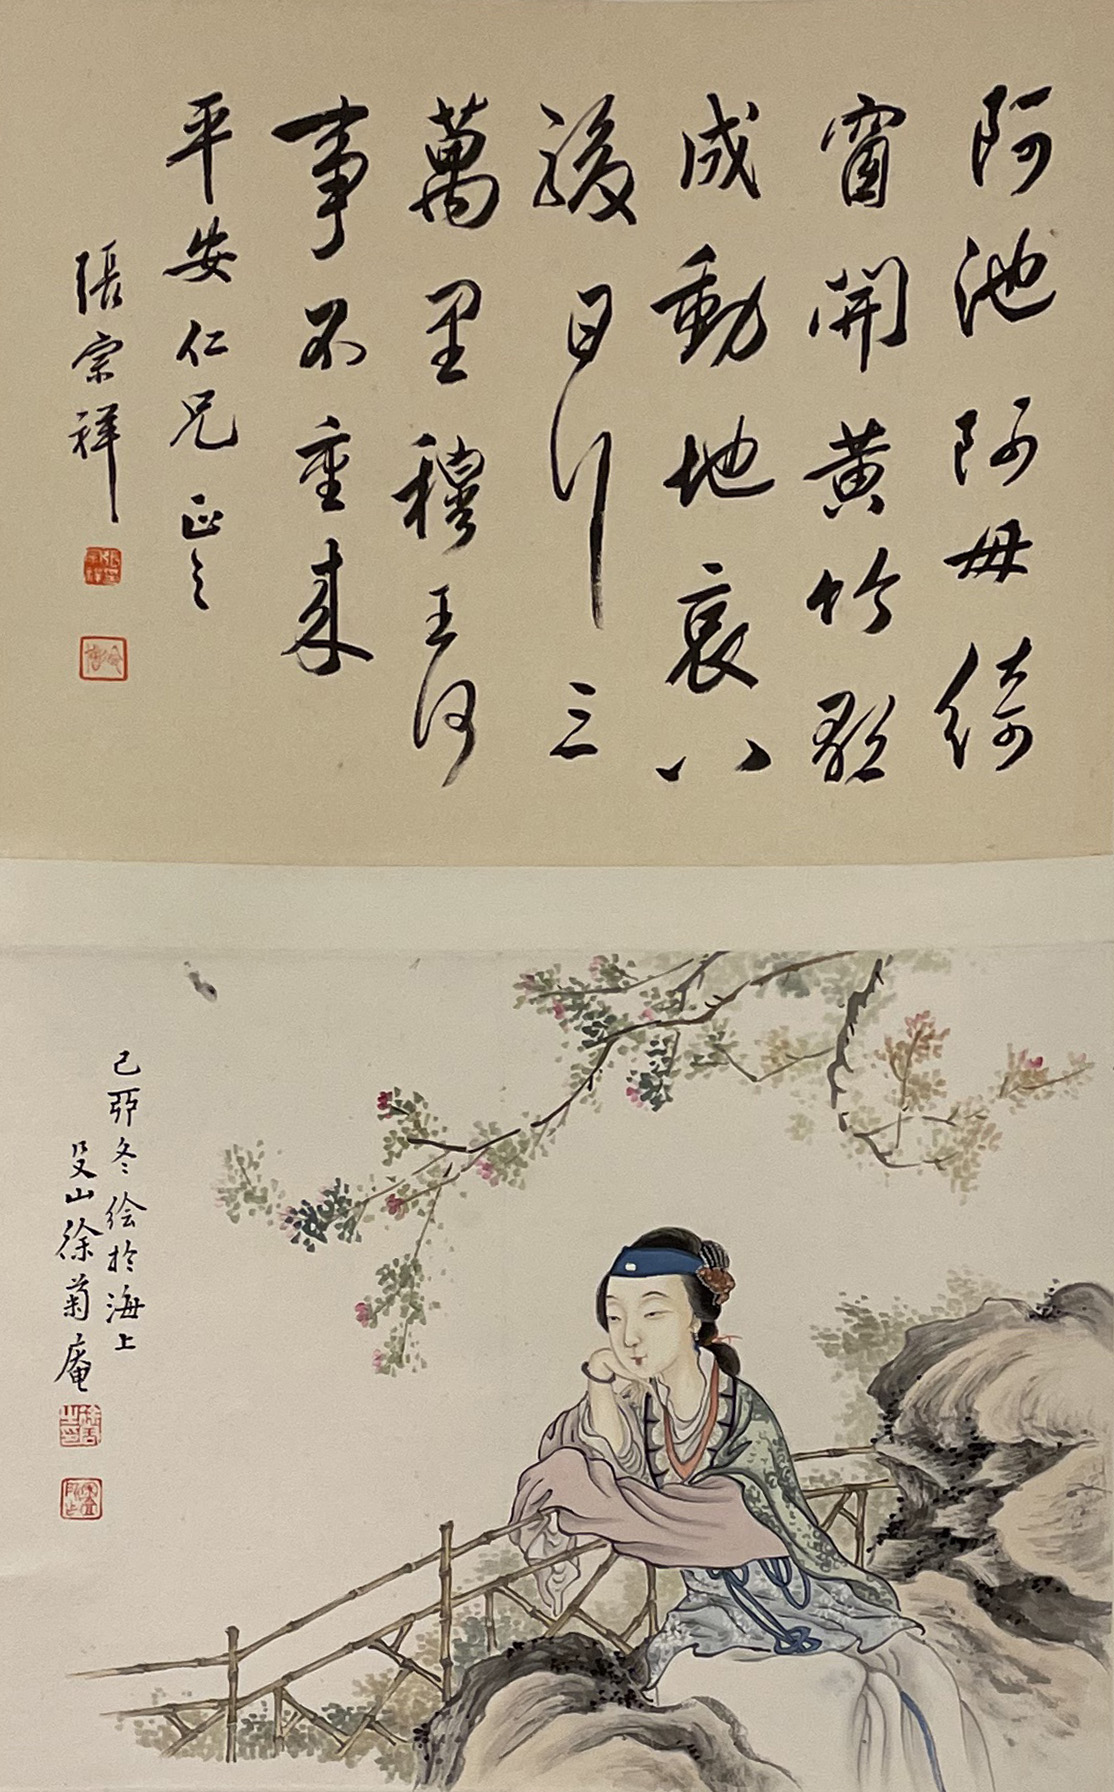 阿池阿母綺
窗開黃竹歌
成動地哀八
駿日行三
萬里穆王何
事不重來
平安仁兄正之
張宗祥
張宗祥
冷僧
己卯冬絵於海上
殳山徐菊庵